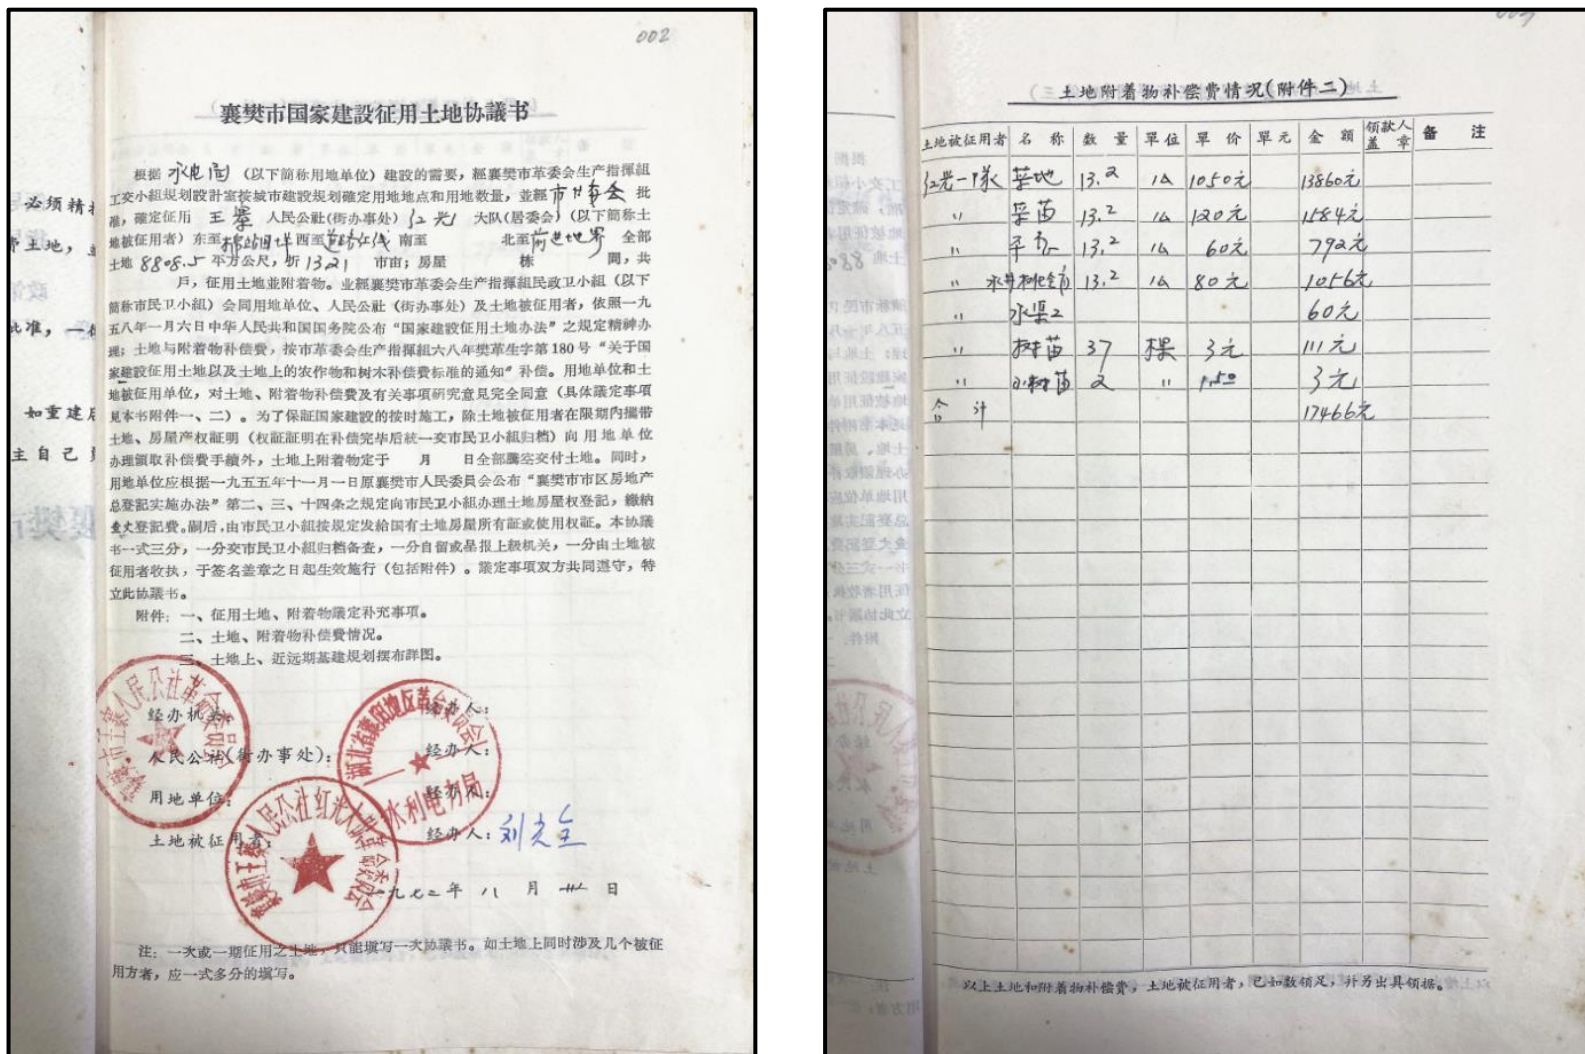 002
襄樊市国家建設征用土地协議书
根据 水电局 (以下简称用地单位) 建設的需要，經襄樊市革委会生产指揮組
工交小組规划設計室按城市建設规划确定用地地点和用地数量，並經 批
准，确定征用 王寨 人民公社(街办事处) 红光 大队(居委会)（以下简称土
地被征用者）东至 西至 南至 北至前进地界 全部
土地 8808.5 平方公尺，折 1321 市亩；房屋 栋 間，共
戶，征用土地並附着物。业經襄樊市革委会生产指揮組民政卫小組（以下
簡称市民卫小組）会同用地单位、人民公社（街办事处）及土地被征用者，依照一九
五八年一月六日中华人民共和国国务院公布“国家建設征用土地办法”之规定精神办
理；土地与附着物补偿費，按市革委会生产指揮組六八年樊革生字第180号“关于国
家建設征用土地以及土地上的农作物和树木补偿費标准的通知”补偿。用地单位和土
地被征用单位，对土地、附着物补偿費及有关事項研究意見完全同意（具体議定事項
見本书附件一、二）。为了保証国家建設的按时施工，除土地被征用者在限期內攜带
土地、房屋产权証明（权証証明在补偿完毕后統一交市民卫小組归档）向用地单位
办理領取补偿費手續外，土地上附着物定于 月 日全部騰空交付土地。同时，
用地单位应根据一九五五年十一月一日原襄樊市人民委員会公布“襄樊市市区房地产
总登記实施办法”第二、三、十四条之规定向市民卫小組办理土地房屋权登記，繳納
查丈登記費。嗣后，由市民卫小組按规定发給国有土地房屋所有証或使用权証。本协議
书一式三分，一分交市民卫小組归档备查，一分自留或呈报上級机关，一分由土地被
征用者收执，于签名盖章之日起生效施行（包括附件）。議定事項双方共同遵守，特
立此协議书。
附件：一、征用土地、附着物議定补充事項。
二、土地、附着物补偿費情况。
三、土地上、近远期基建规划摆布詳图。
经办机关： 经办人：
人民公社(街办事处)： 经办人：
用地单位： 经办人：
土地被征用者： 经办人：刘光全
一九七二年 八 月 卅 日
注：一次或一期征用之土地，只能填写一次协議书。如土地上同时涉及几个被征
用方者，应一式多分的填写。
襄樊市王寨人民公社革命委員会
湖北省襄阳地区革命委員会
水利电力局
襄樊市王寨人民公社红光大队革命委員会
必须精
土地，
政
批准，一
如重建后
主自己
土地附着物补偿費情况(附件二)
土地被征用者 名称 数量 單位 單价 單元 金額 领款人盖章 备注
红光一队 菜地 13.2 亩 1050元 13860元
〃 菜苗 13.2 亩 120元 1584元
〃 13.2 亩 60元 792元
〃 13.2 亩 80元 1056元
〃 水渠2 60元
〃 树苗 37 棵 3元 111元
〃 小树苗 2 〃 1.50 3元
合计 17466元
以上土地和附着物补偿費，土地被征用者，已如数领足，并另出具领据。